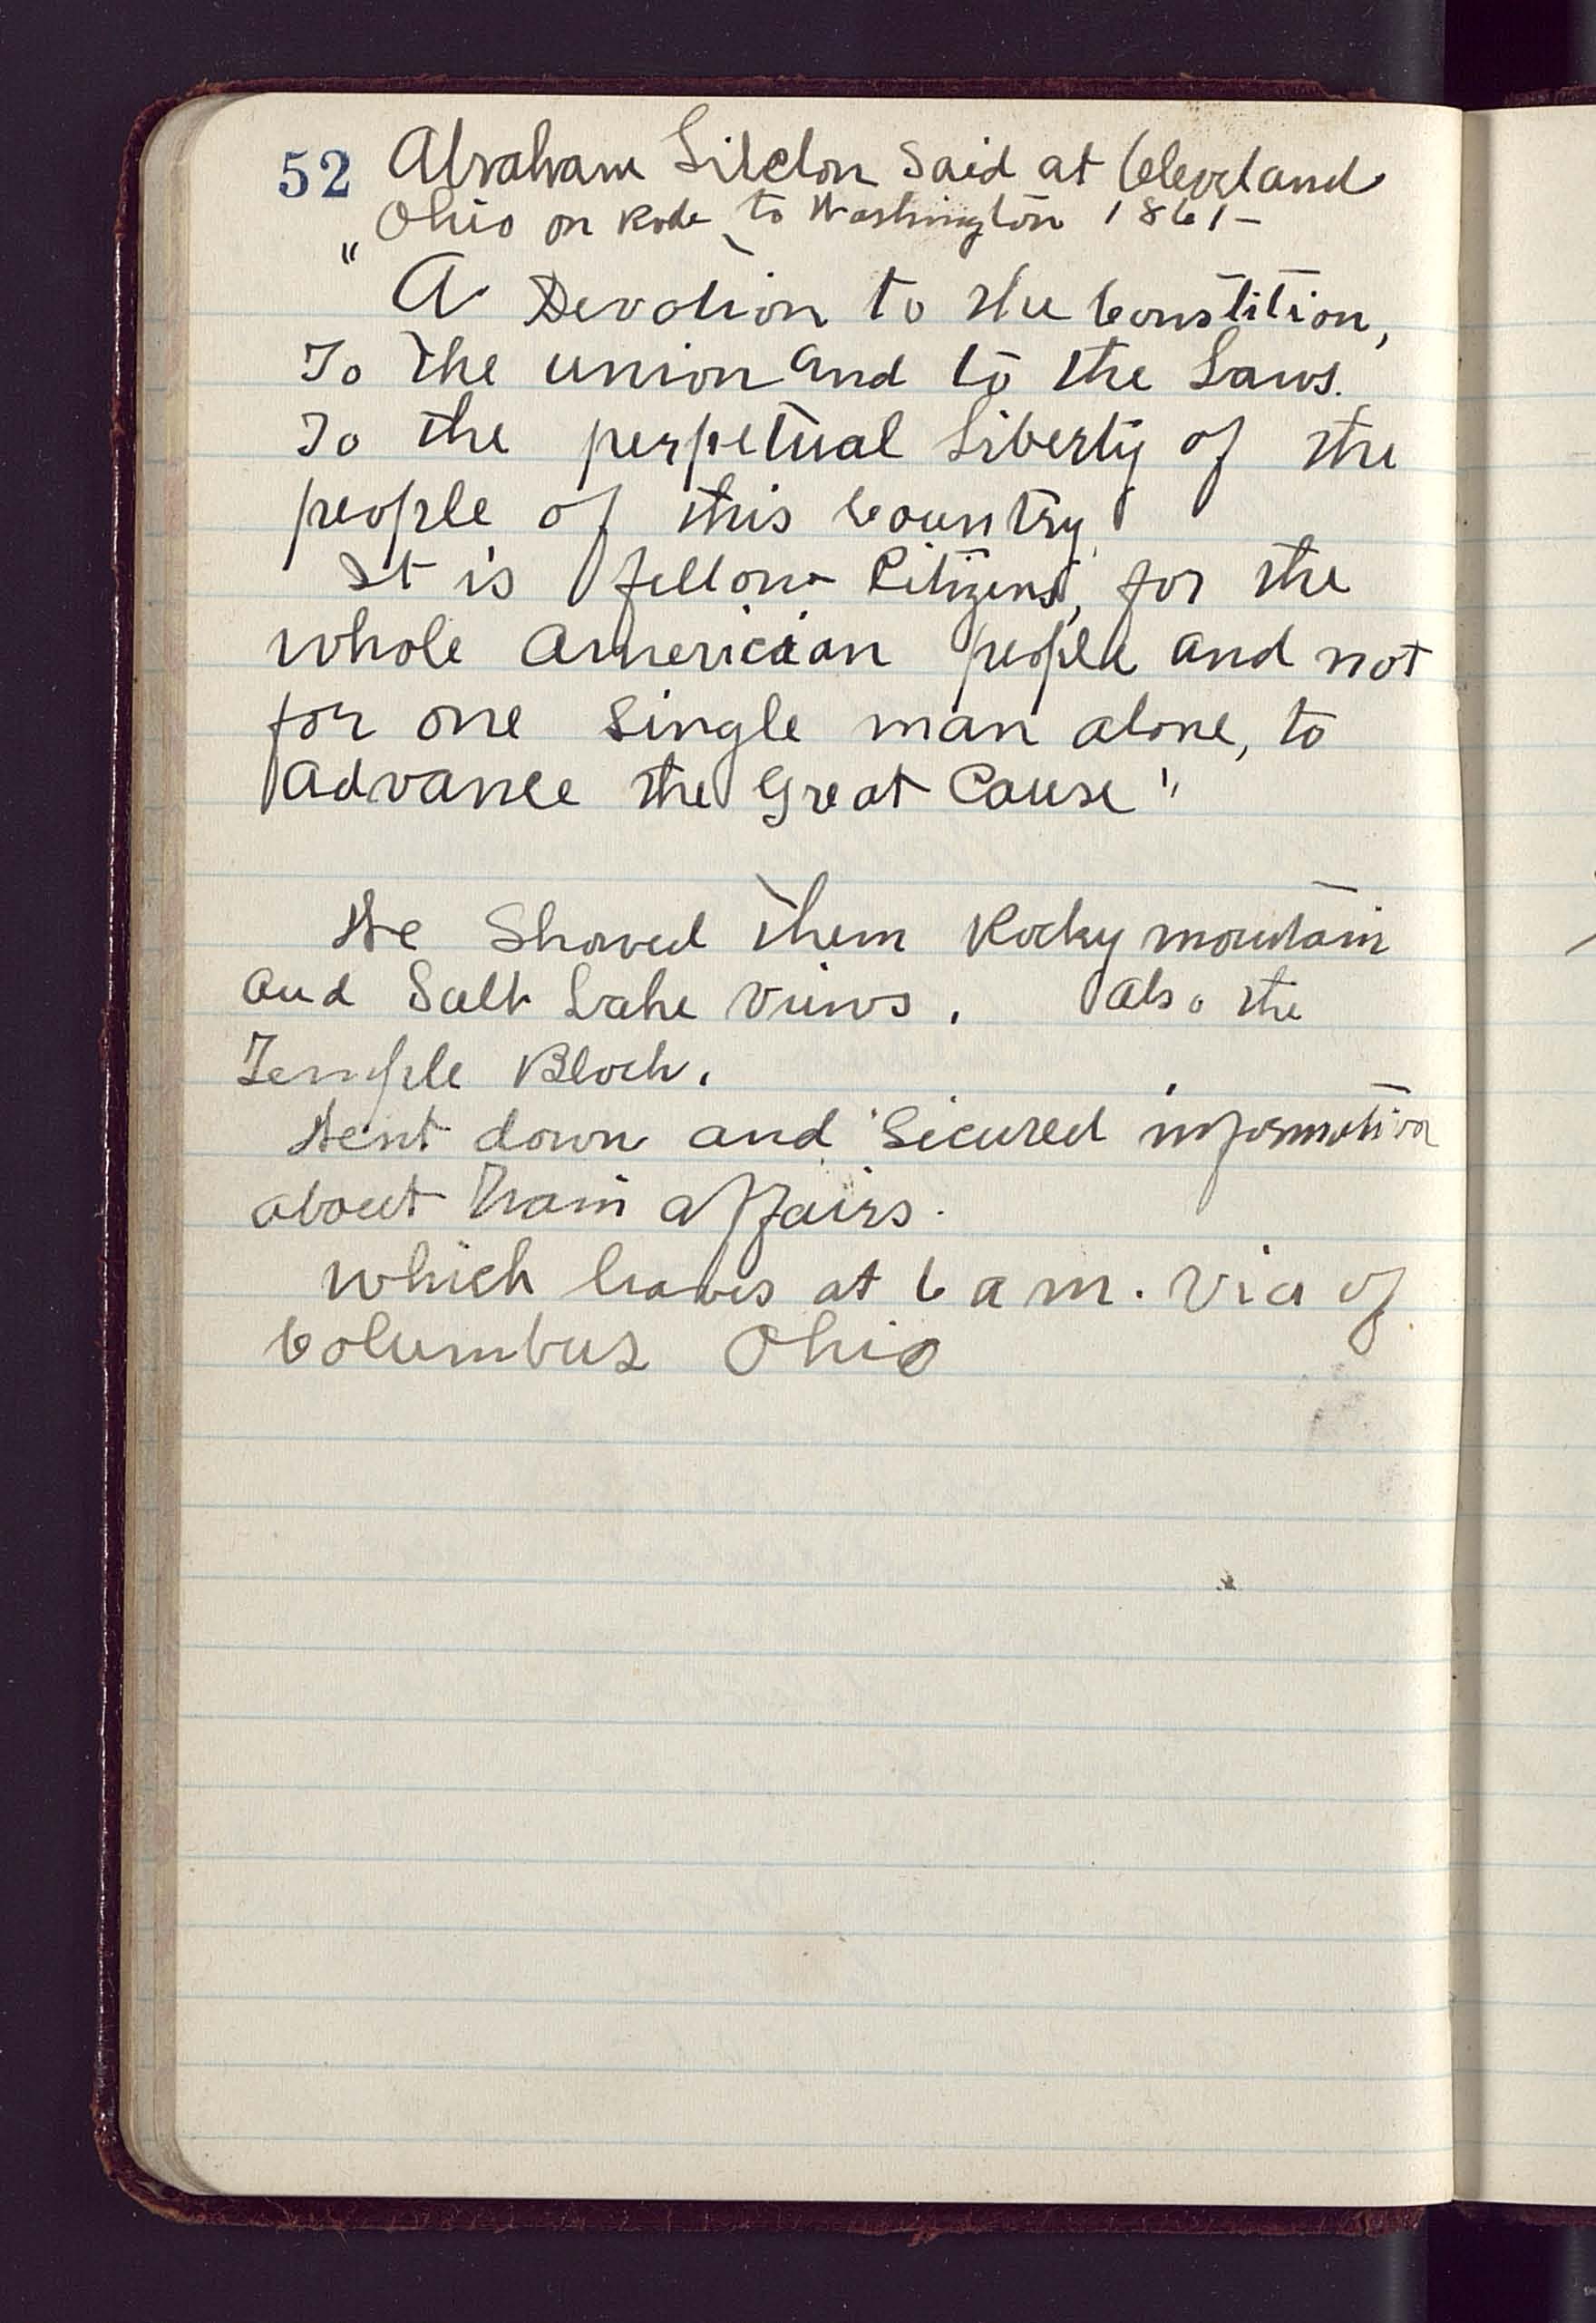 52 Abraham Lilclon Said at Cleveland
Ohio on Rode to Washington 1861-
"A Devotion to the Constition,
To the union and to the Laws.
To the perpetual Liberty of the
people of this Country.
It is fellow Citizens, for the
whole americian people and not
for one single man alone, to
advance the Great Cause"
We Showed them Rocky mountain
and Salt Lake views. Also the
Temple Block.
Went down and Secured information
about train affairs.
which leaves at 6 a m. via of
Columbus Ohio